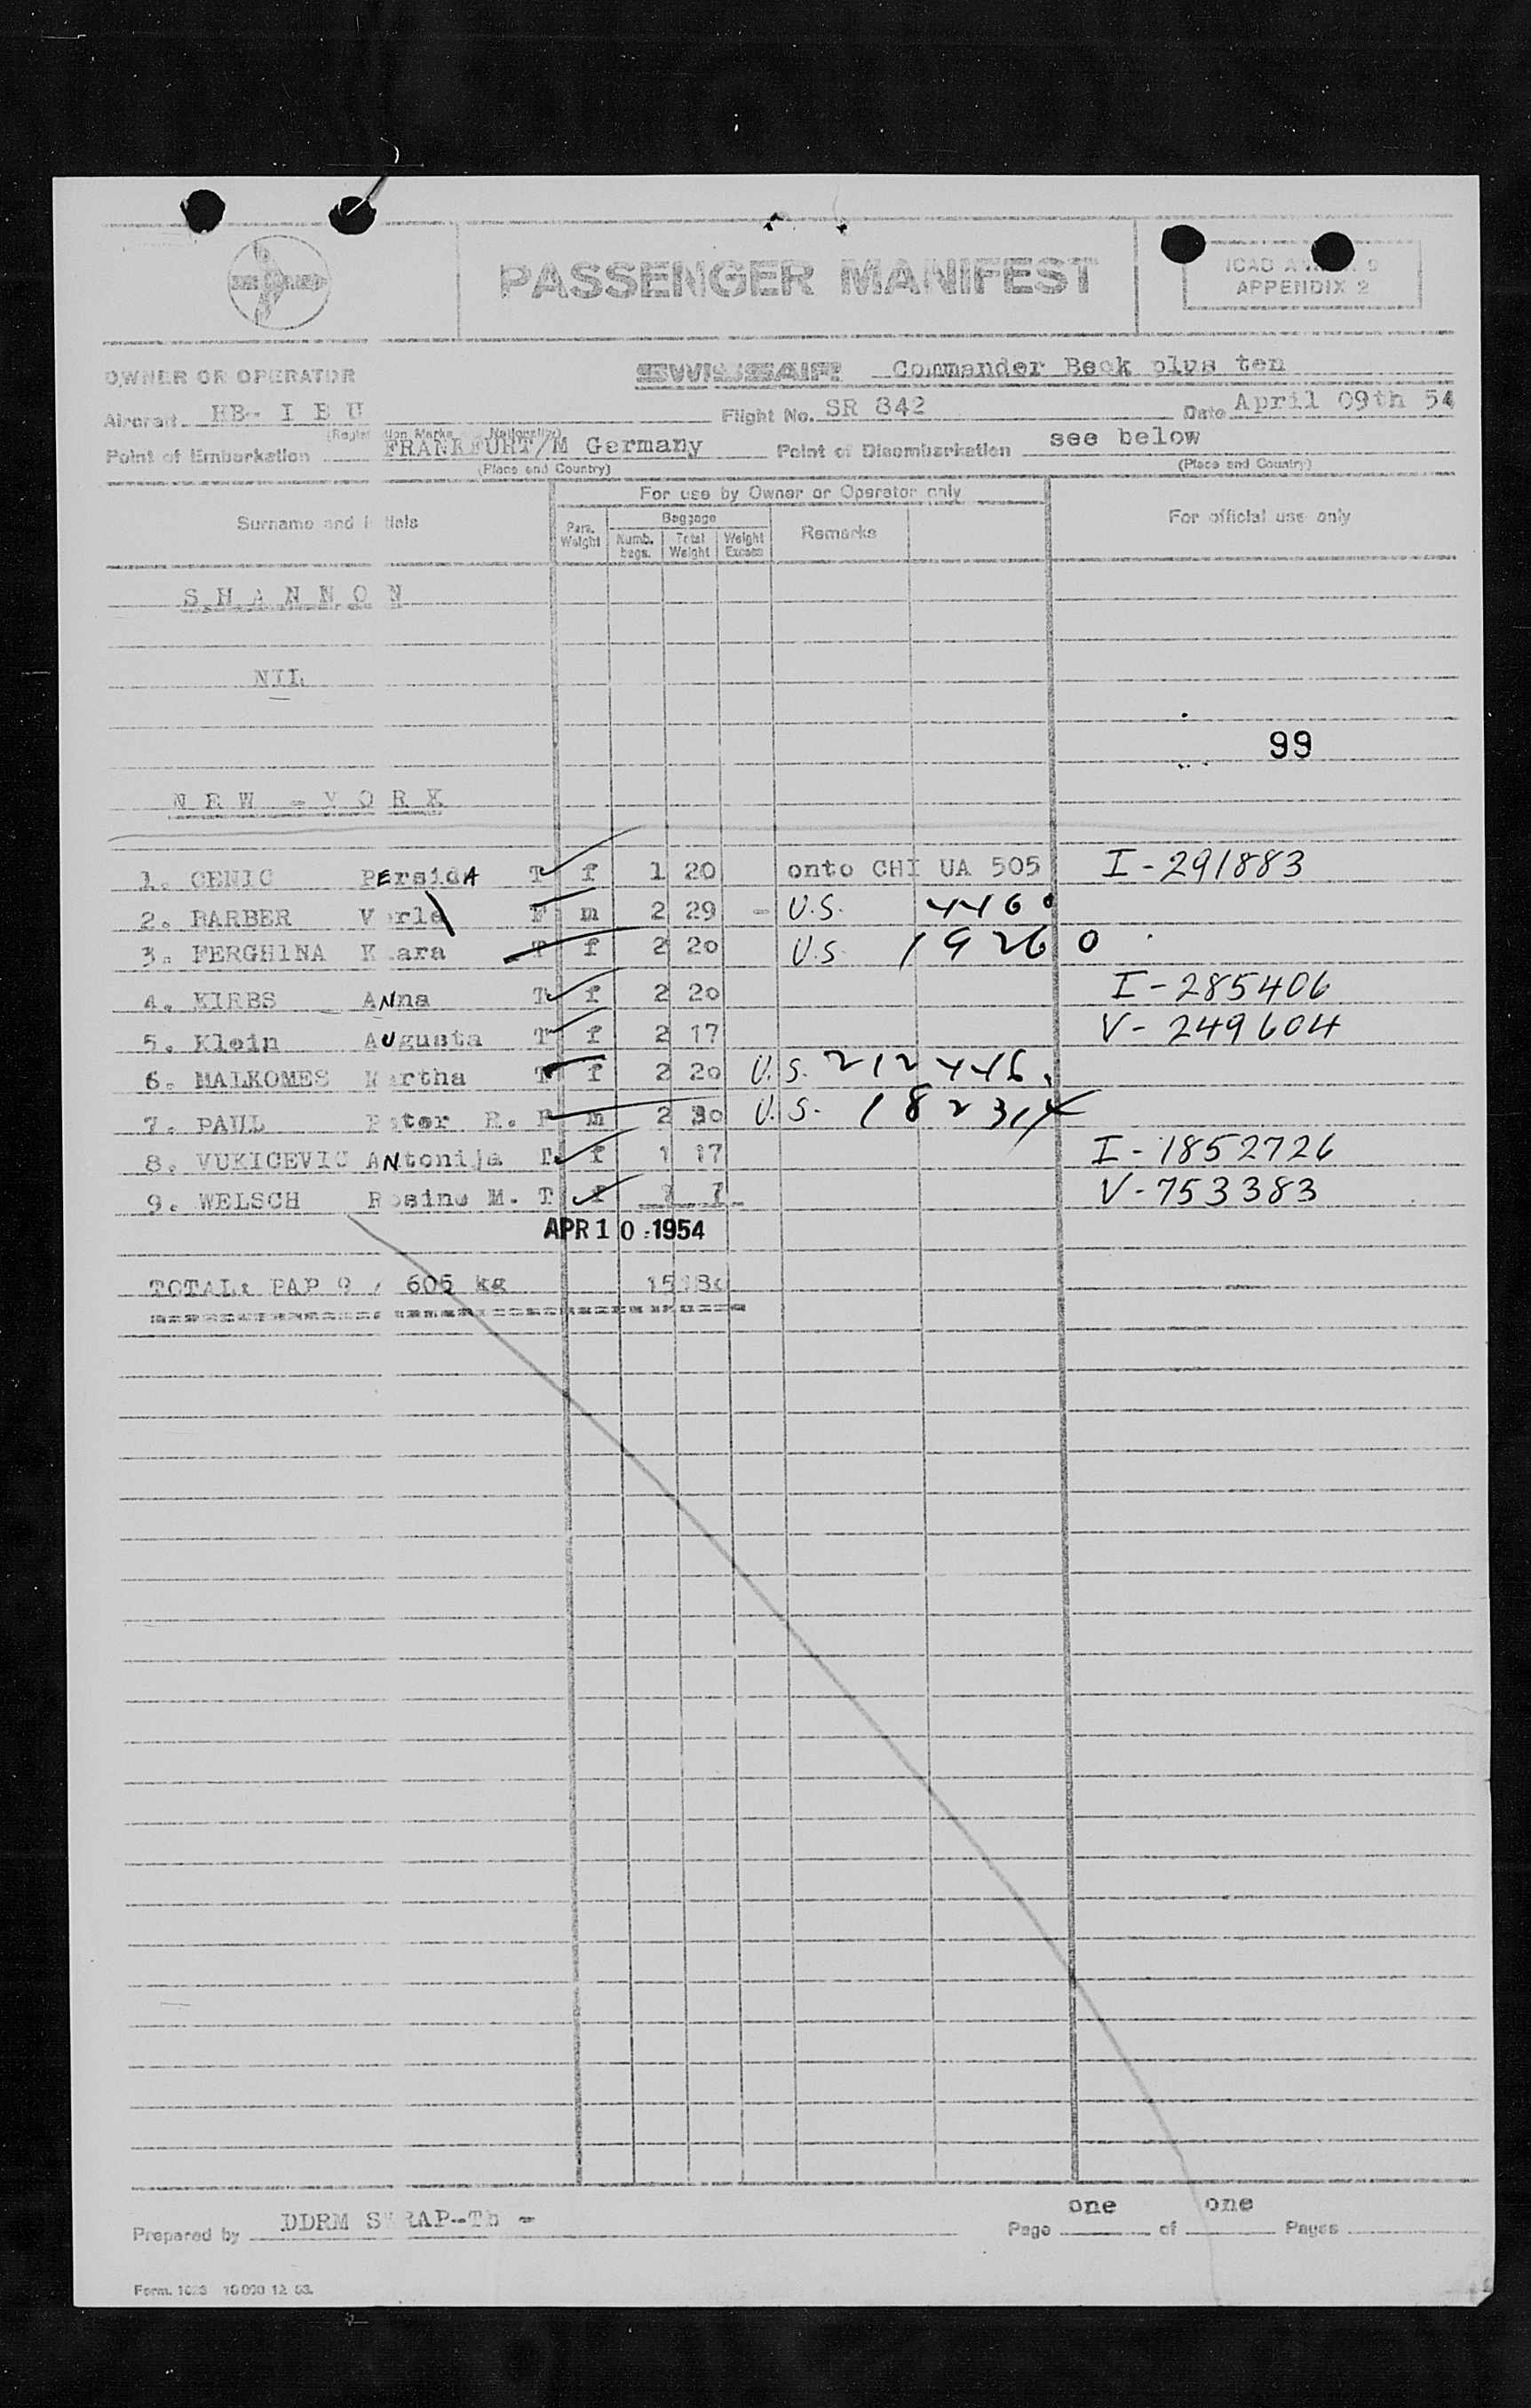 PASSENGER MANIFEST
APPENDIX 2
OWNER OR OPERATOR SWISSAIR Commander Beck plus ten
Aircraft HB- I B U Flight No. SR 842 Date April 09th 54
(Nationality)
Point of Embarkation FRANKFURT/M Germany Point of Disembarkation see below
(Place and Country) (Place and Country)
For use by Owner or Operator only
Surname and Initials Pars. Weight Baggage Remarks For official use only
Numb. bags. Total Weight Weight Excess
S H A N N O N
NIL
99
N E W - Y O R K
1. CENIC PErsidA T f 1 20 onto CHI UA 505 I-291883
2. BARBER F m 2 29 - U.S. 4460
3. FERGHINA Klara T f 2 20 U.S. 19260
4. KIRBS ANna T f 2 20 I-285406
5. Klein AUgusta T f 2 17 V-249604
6. MALKOMES Martha T f 2 20 U.S. 212446
7. PAUL Peter R. F m 2 30 U.S.
8. VUKICEVIC ANtonija T f 1 17 I-1852726
9. WELSCH Rosine M. T f 7 V-753383
APR 10 1954
TOTAL: PAP 9 / 605 kg 15
one one
Prepared by DDRM Page of Pages
Form.